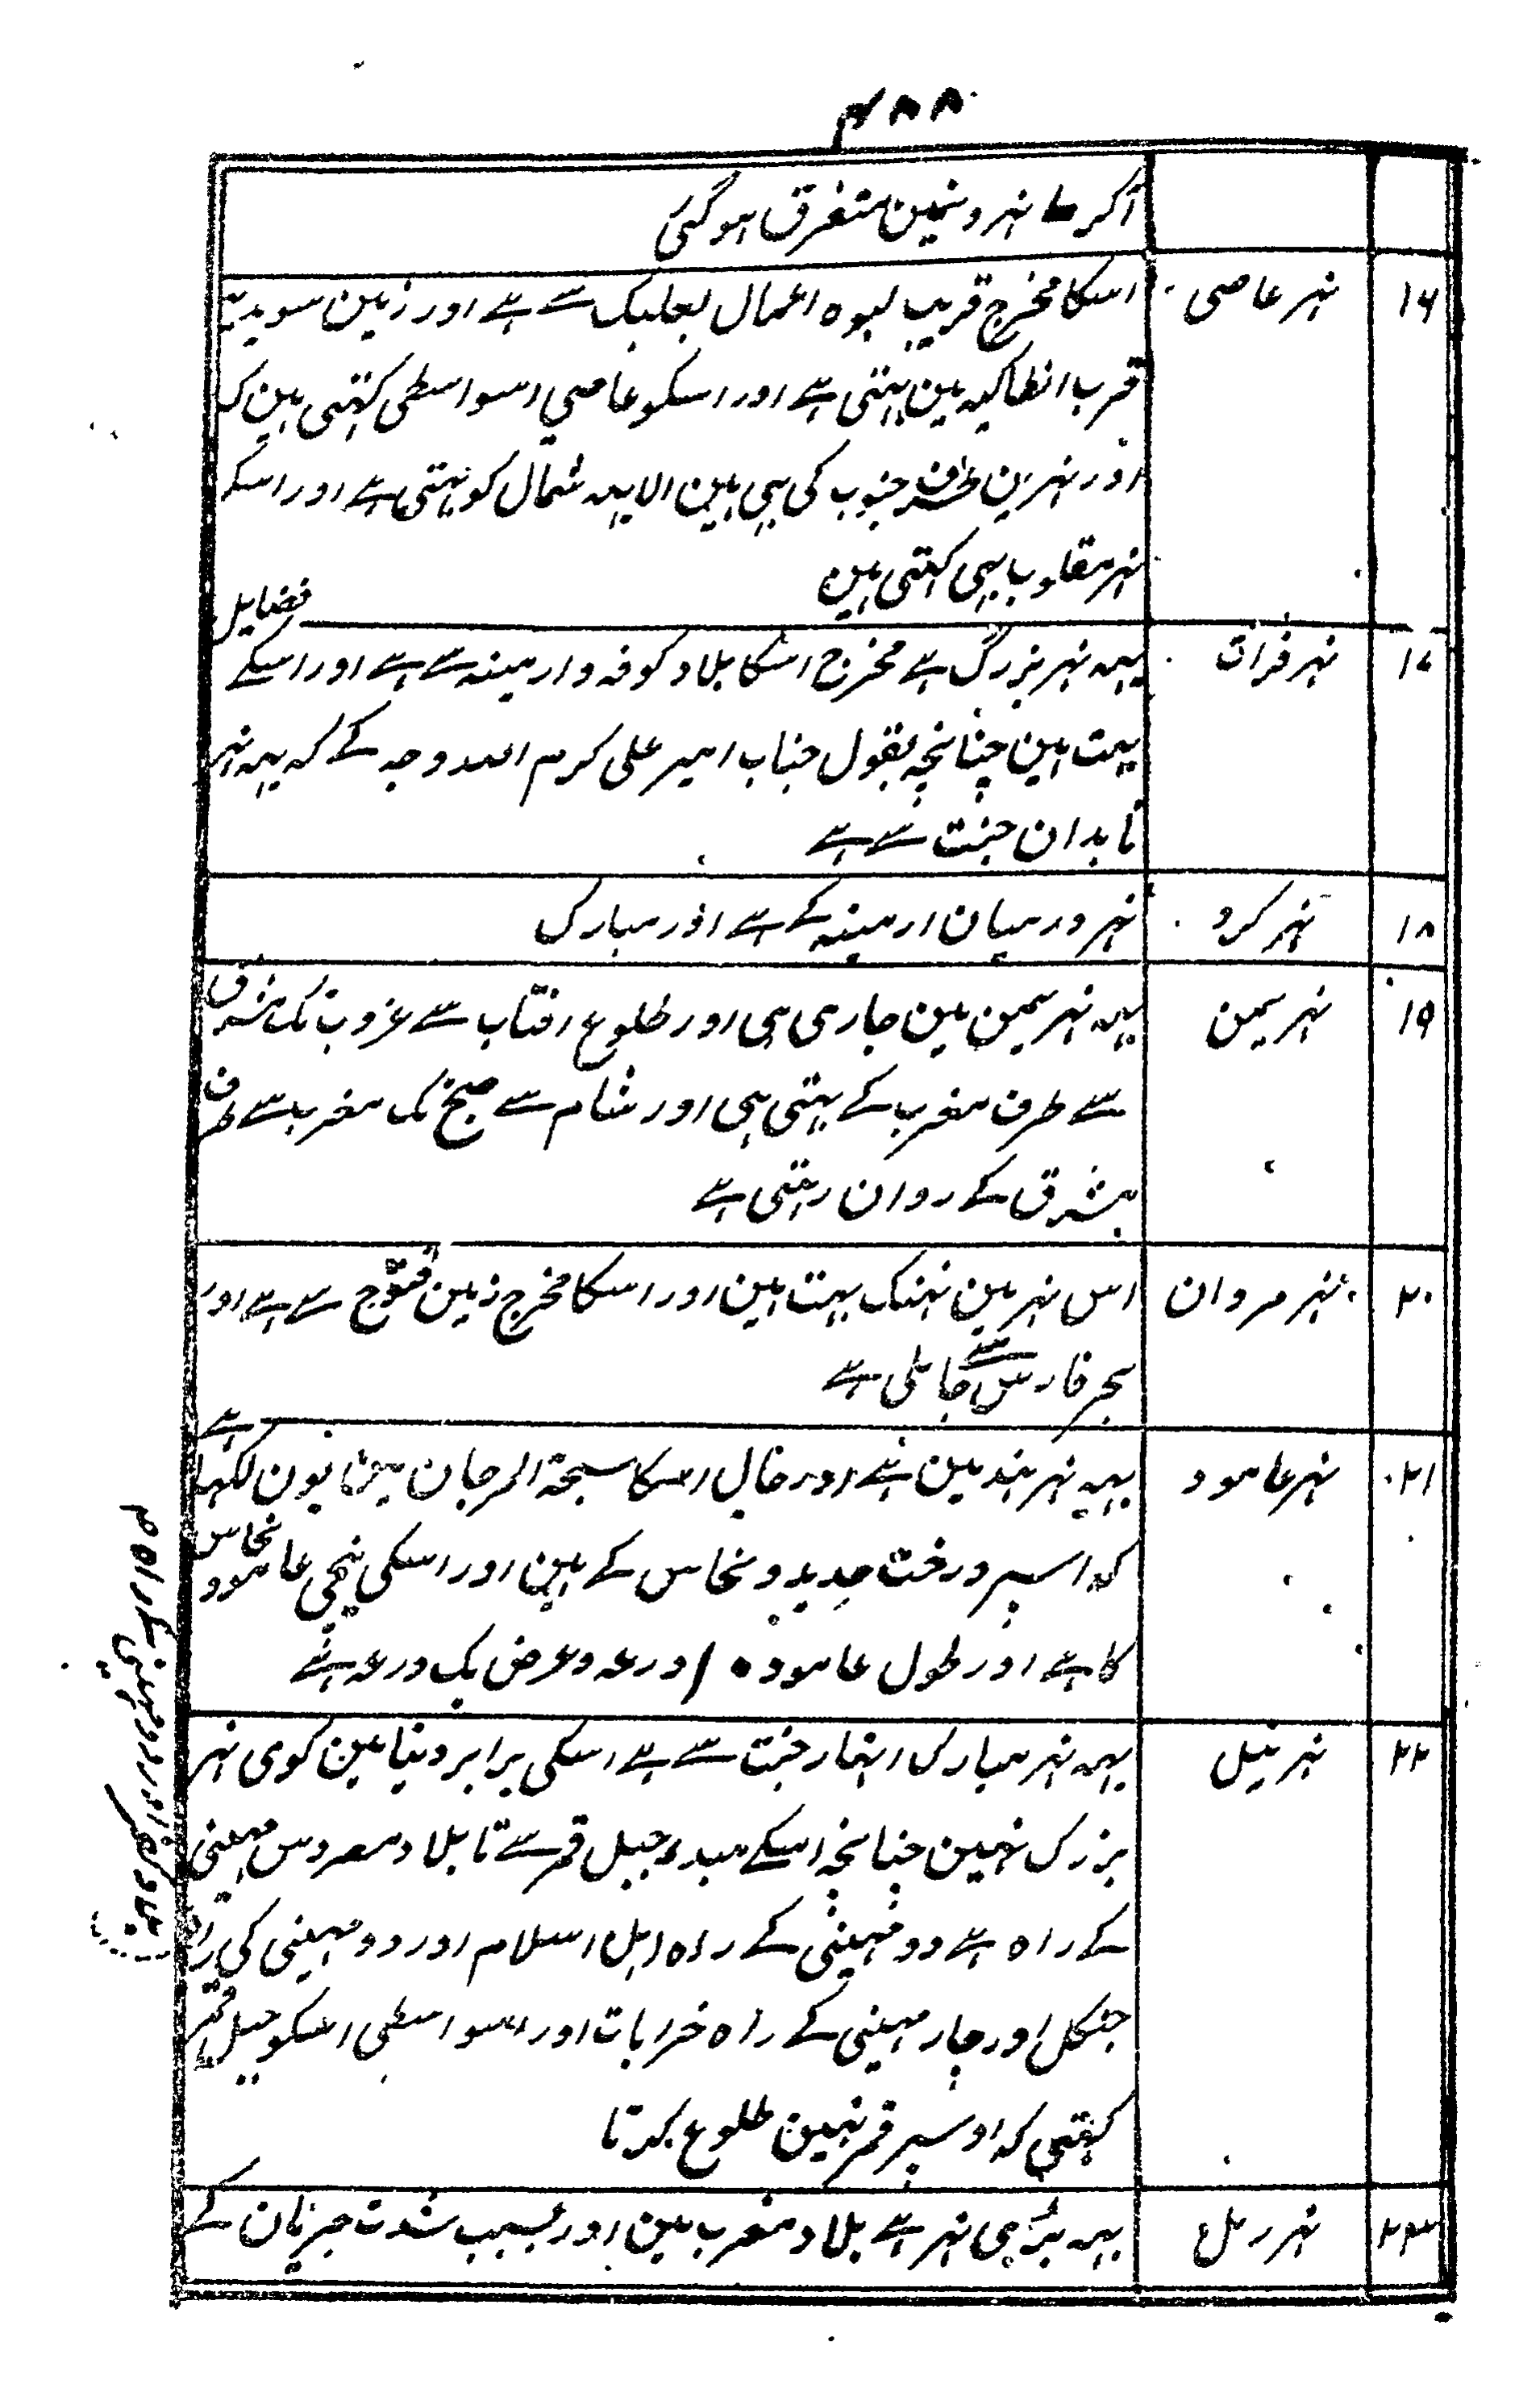 ۴۸۸
آکر ۷ نہرونمین متفرق ہوگئی
۱۶ نہر عاصی اسکا مخرج قریب لبوہ اعمال بعلبک سے ہے اور زمین سویدیہ
قرب انطاکیہ مین بہتی ہے اور اسکو عاصی اسواسطی کہتی ہین کہ
اور نہرین طرف جنوب کی بہی ہین الا یہہ شمال کو بہتی ہے اور اسکو
نہر مقلوب بہی کہتی ہین
۱۷ نہر فرات یہہ نہر بزرگ ہے مخرج اسکا بلاد کوفہ و ارمینہ سے ہے اور اسکے فضایل
بہت ہین چنانچہ بقول جناب امیر علی کرم اللہ وجہ کے کہ یہہ نہر
تابدان جنت سے ہے
۱۸ نہر کرد نہر درمیان ارمینہ کے ہے اور مبارک
۱۹ نہر یمن یہہ نہر یمن مین جاری ہی اور طلوع افتاب سے غروب تک مشرق
سے طرف مغرب کے بہتی ہی اور شام سے صبح تک مغرب سے طرف
مشرق کے روان رہتی ہے
۲۰ نہر مروان اس نہر مین نہنک بہت ہین اور اسکا مخرج زمین قنوج سے ہے اور
بحر فارس سے جا ملی ہے
۲۱ نہر عامود یہہ نہر ہند مین ہے اور حال اسکا سبحۃ المرجان مین یون لکہا ہے
کہ اسپر درخت حدید و نحاس کے ہین اور اسکی نیچی عامود نحاس
کا ہے اور طول عامود ۱۰ ذرعہ و عرض یک ذرعہ ہے
۲۲ نہر نیل یہہ نہر مبارک انہار جنت سے ہے اسکی برابر دنیا مین کوی نہر
بزرک نہین چنانچہ اسکے مبدء جبل قمر سے تا بلاد مصر دس مہینی
کے راہ ہے دو مہینی کے راہ اہل اسلام اور دو مہینی کی راہ
جنکل اور چار مہینی کے راہ خرابات اور اسواسطی اسکو جبل قمر
کہتی کہ اوسپر قمر نہین طلوع کرتا
۲۳ نہر رمل یہہ بڑی نہر ہے بلاد مغرب مین اور بسبب شدت جریان کے